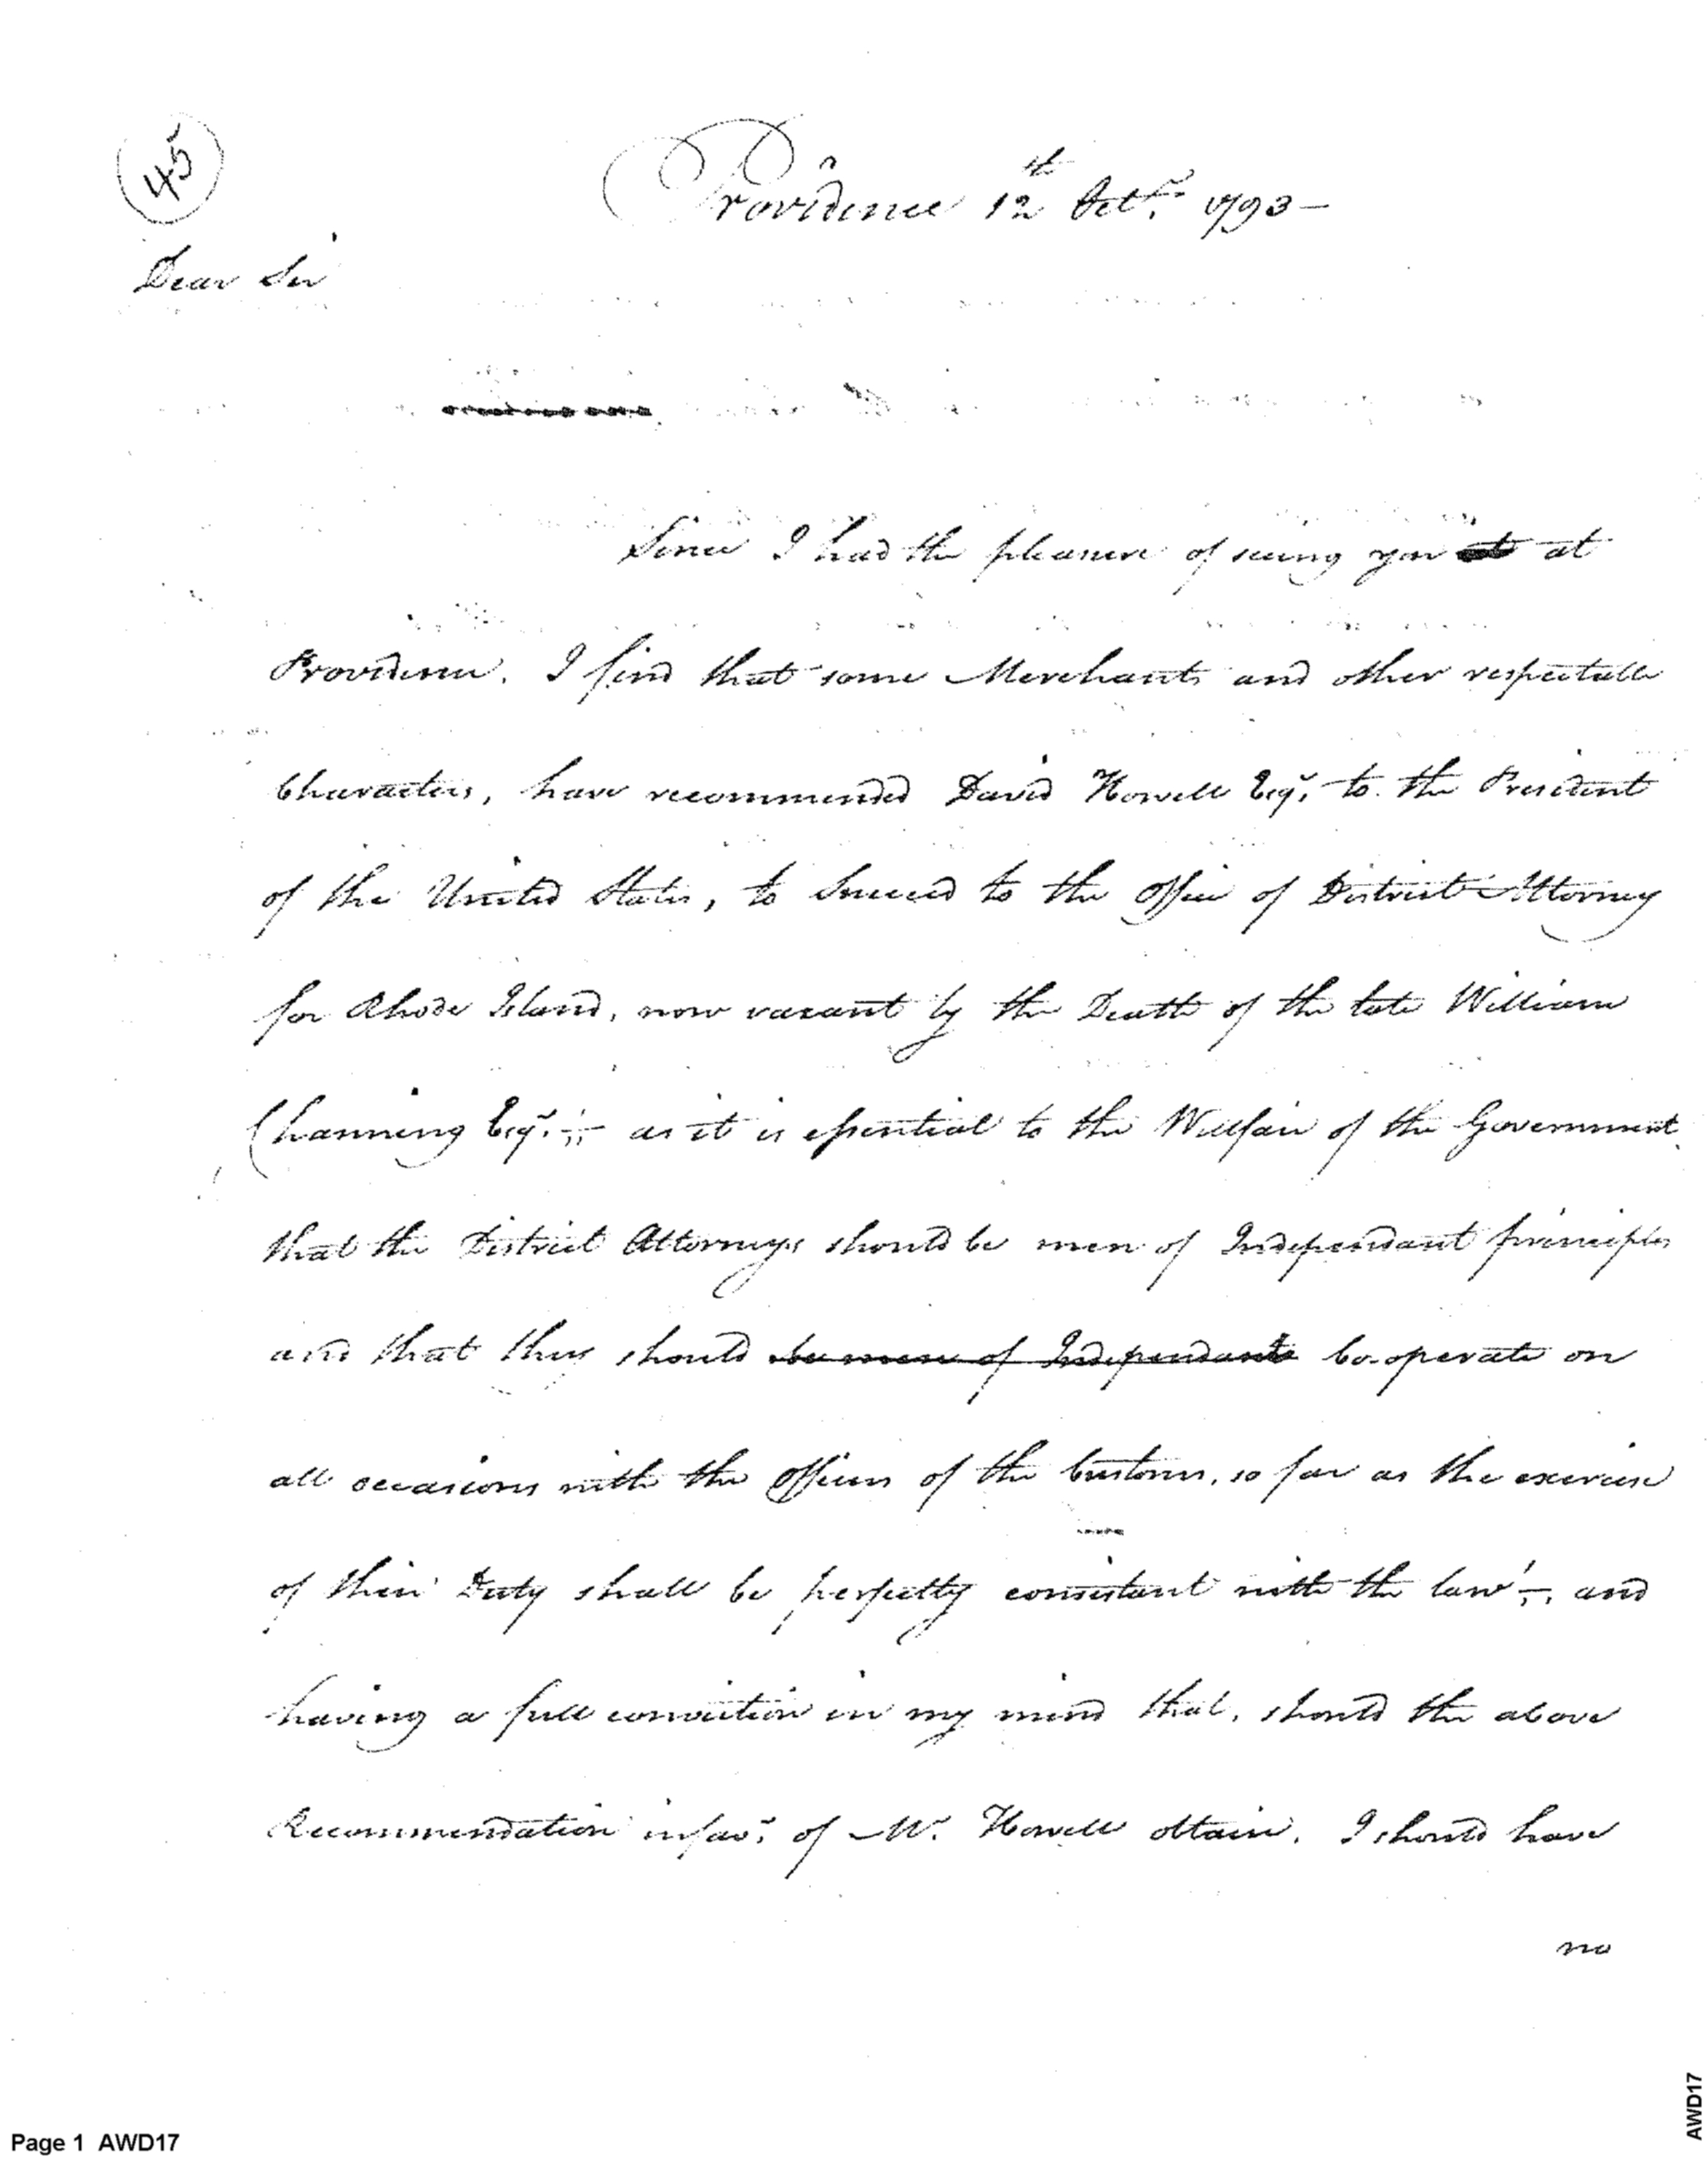 45
Providence 12th Octr. 1793 —
Dear Sir
Since I had the pleasure of seeing you at at
Providence. I find that some Merchants and other respectable
Characters, have recommended David Howell Esqr. to the President
of the United States, to succeed to the Office of District Attorney
for Rhode Island, now vacant by the Death of the late William
Channing Esqr. ;— as it is essential to the Welfair of the Government
that the District Attorneys should be men of Independant principles
and that they should be men of Independants Co-operate on
all occasions with the Officers of the Customs, so far as the exercise
of their Duty shall be perfectly consistant with the law ;— and
having a full conviction in my mind that, should the above
Recommendation in favr. of Mr. Howell obtain. I should have
no
Page 1 AWD17
AWD17